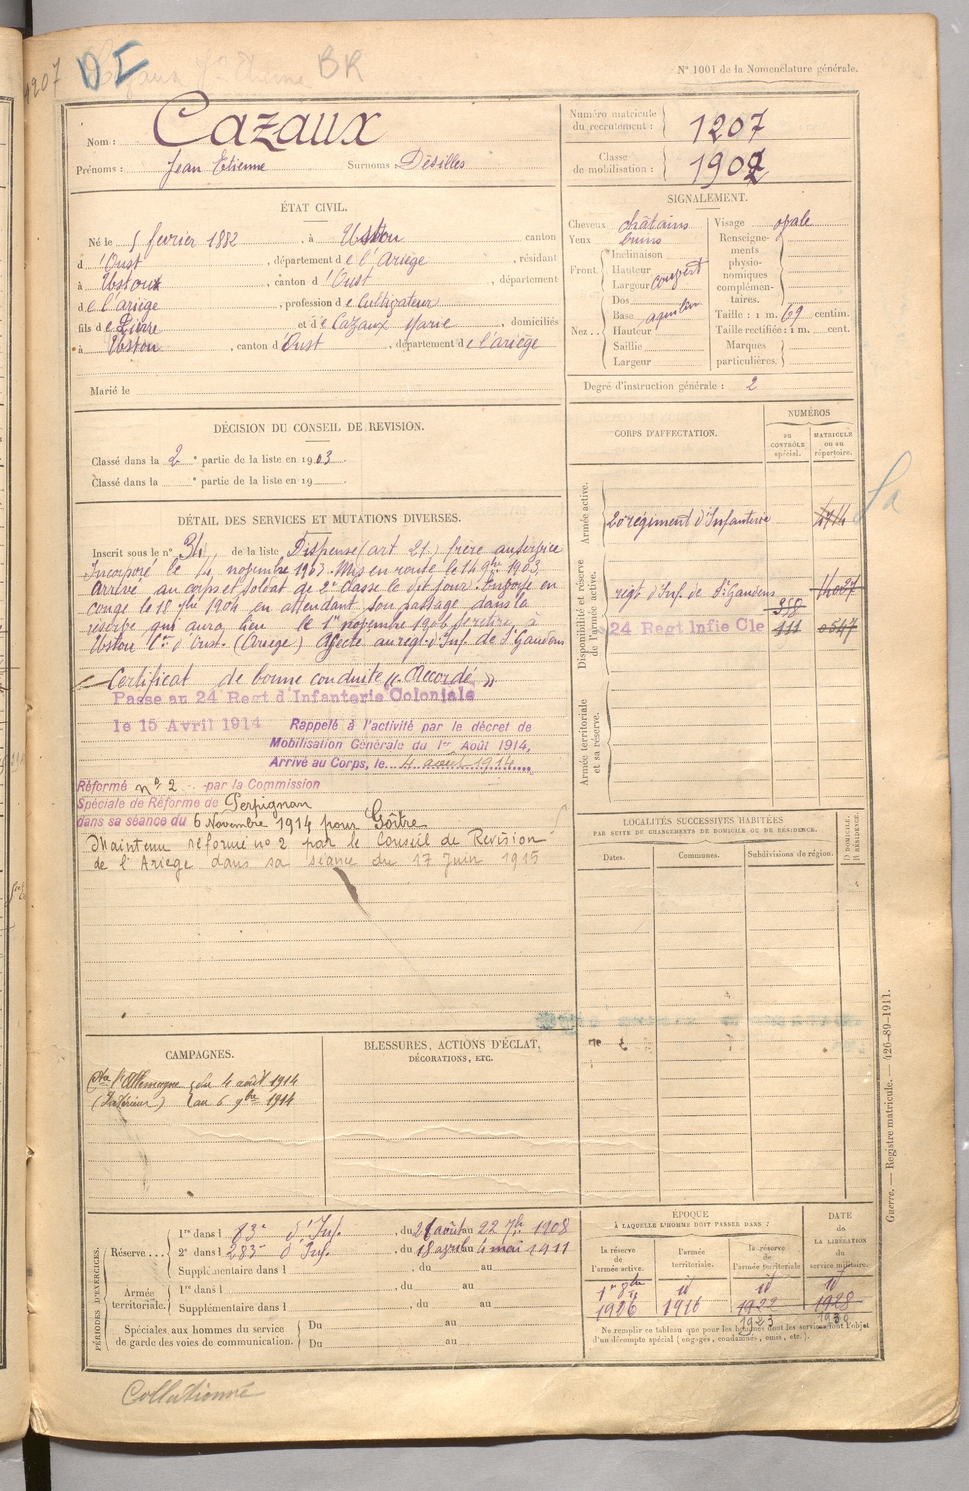 1207
DE BR
N° 1001 de la Nomenclature générale.
Nom : Cazaux
Prénoms : Jean Etienne Surnoms : Désilles
Numéro matricule du recrutement : 1207
Classe de mobilisation : 1902
ÉTAT CIVIL.
Né le 5 fevrier 1882, à Ustou canton
d'Oust, département de l'Ariège, résidant
à Ustou, canton d'Oust, département
de l'ariège, profession de Cultivateur
fils de Pierre et de Cazaux Marie, domiciliés
à Ustou, canton d'Oust, département de l'ariège
Marié le
SIGNALEMENT.
Cheveux châtains
Yeux bruns
Front. Inclinaison
Hauteur
Largeur couvert
Nez.. Dos
Base aquilin
Hauteur
Saillie
Largeur
Visage ovale
Renseignements physionomiques complémentaires.
Taille : 1 m. 69 centim.
Taille rectifiée : 1 m. cent.
Marques particulières.
Degré d'instruction générale : 2
DÉCISION DU CONSEIL DE REVISION.
Classé dans la 2e partie de la liste en 1903.
Classé dans la e partie de la liste en 19
DÉTAIL DES SERVICES ET MUTATIONS DIVERSES.
Inscrit sous le n° 34, de la liste Dispensé (art 21) frère au service
Incorporé le 14 novembre 1903. Mis en route le 14 9bre 1903
Arrivé au corps et soldat de 2e classe le dit jour. Envoyé en
congé le 18 7bre 1904 en attendant son passage dans la
réserve qui aura lieu le 1er novembre 1906 se retire à
Ustou Con d'Oust. (Ariège) Affecté au régt d'Inf. de St Gaudens
Certificat de bonne conduite « Accordé »
Passé au 24 Regt d'Infanterie Coloniale
le 15 Avril 1914 Rappelé à l'activité par le décret de
Mobilisation Générale du 1er Août 1914,
Arrivé au Corps, le 4 août 1914
Réformé n° 2 par la Commission
Spéciale de Réforme de Perpignan
dans sa séance du 6 Novembre 1914 pour Goître
Maintenu réformé no 2 par le Conseil de Revision
de l'Ariège dans sa séance du 17 Juin 1915
CORPS D'AFFECTATION.
NUMÉROS
AU CONTRÔLE spécial.
MATRICULE ou au répertoire.
Armée active.
20e régiment d'Infanterie
Disponibilité et réserve de l'armée active.
régt d'Inf. de St Gaudens 358
24 Regt Infie Cle 111 0547
Armée territoriale et sa réserve.
LOCALITÉS SUCCESSIVES HABITÉES
PAR SUITE DE CHANGEMENTS DE DOMICILE OU DE RÉSIDENCE.
Dates. Communes. Subdivisions de région. D DOMICILE. R RÉSIDENCE.
CAMPAGNES.
Cte l'Allemagne du 4 août 1914
(Intérieur) au 6 9bre 1914
BLESSURES, ACTIONS D'ÉCLAT,
DÉCORATIONS, ETC.
PÉRIODES D'EXERCICES.
Réserve... 1re dans l 83e d'Inf. , du 21 août au 22 7bre 1908
2e dans l 283e d'Inf. , du 18 avril au 4 mai 1911
Supplémentaire dans l , du au
Armée territoriale. 1re dans l , du au
Supplémentaire dans l , du au
Spéciales aux hommes du service de garde des voies de communication. Du au
Du au
ÉPOQUE
À LAQUELLE L'HOMME DOIT PASSER DANS :
la réserve de l'armée active.
l'armée territoriale.
la réserve de l'armée territoriale
DATE de LA LIBÉRATION du service militaire.
1er 8bre id id id
1906 1916 1922 1928
1923 1930
Ne remplir ce tableau que pour les hommes dont les services font l'objet
d'un décompte spécial (engagés, condamnés, omis, etc.).
Guerre. — Registre matricule. — 426-89-1911.
Collationné